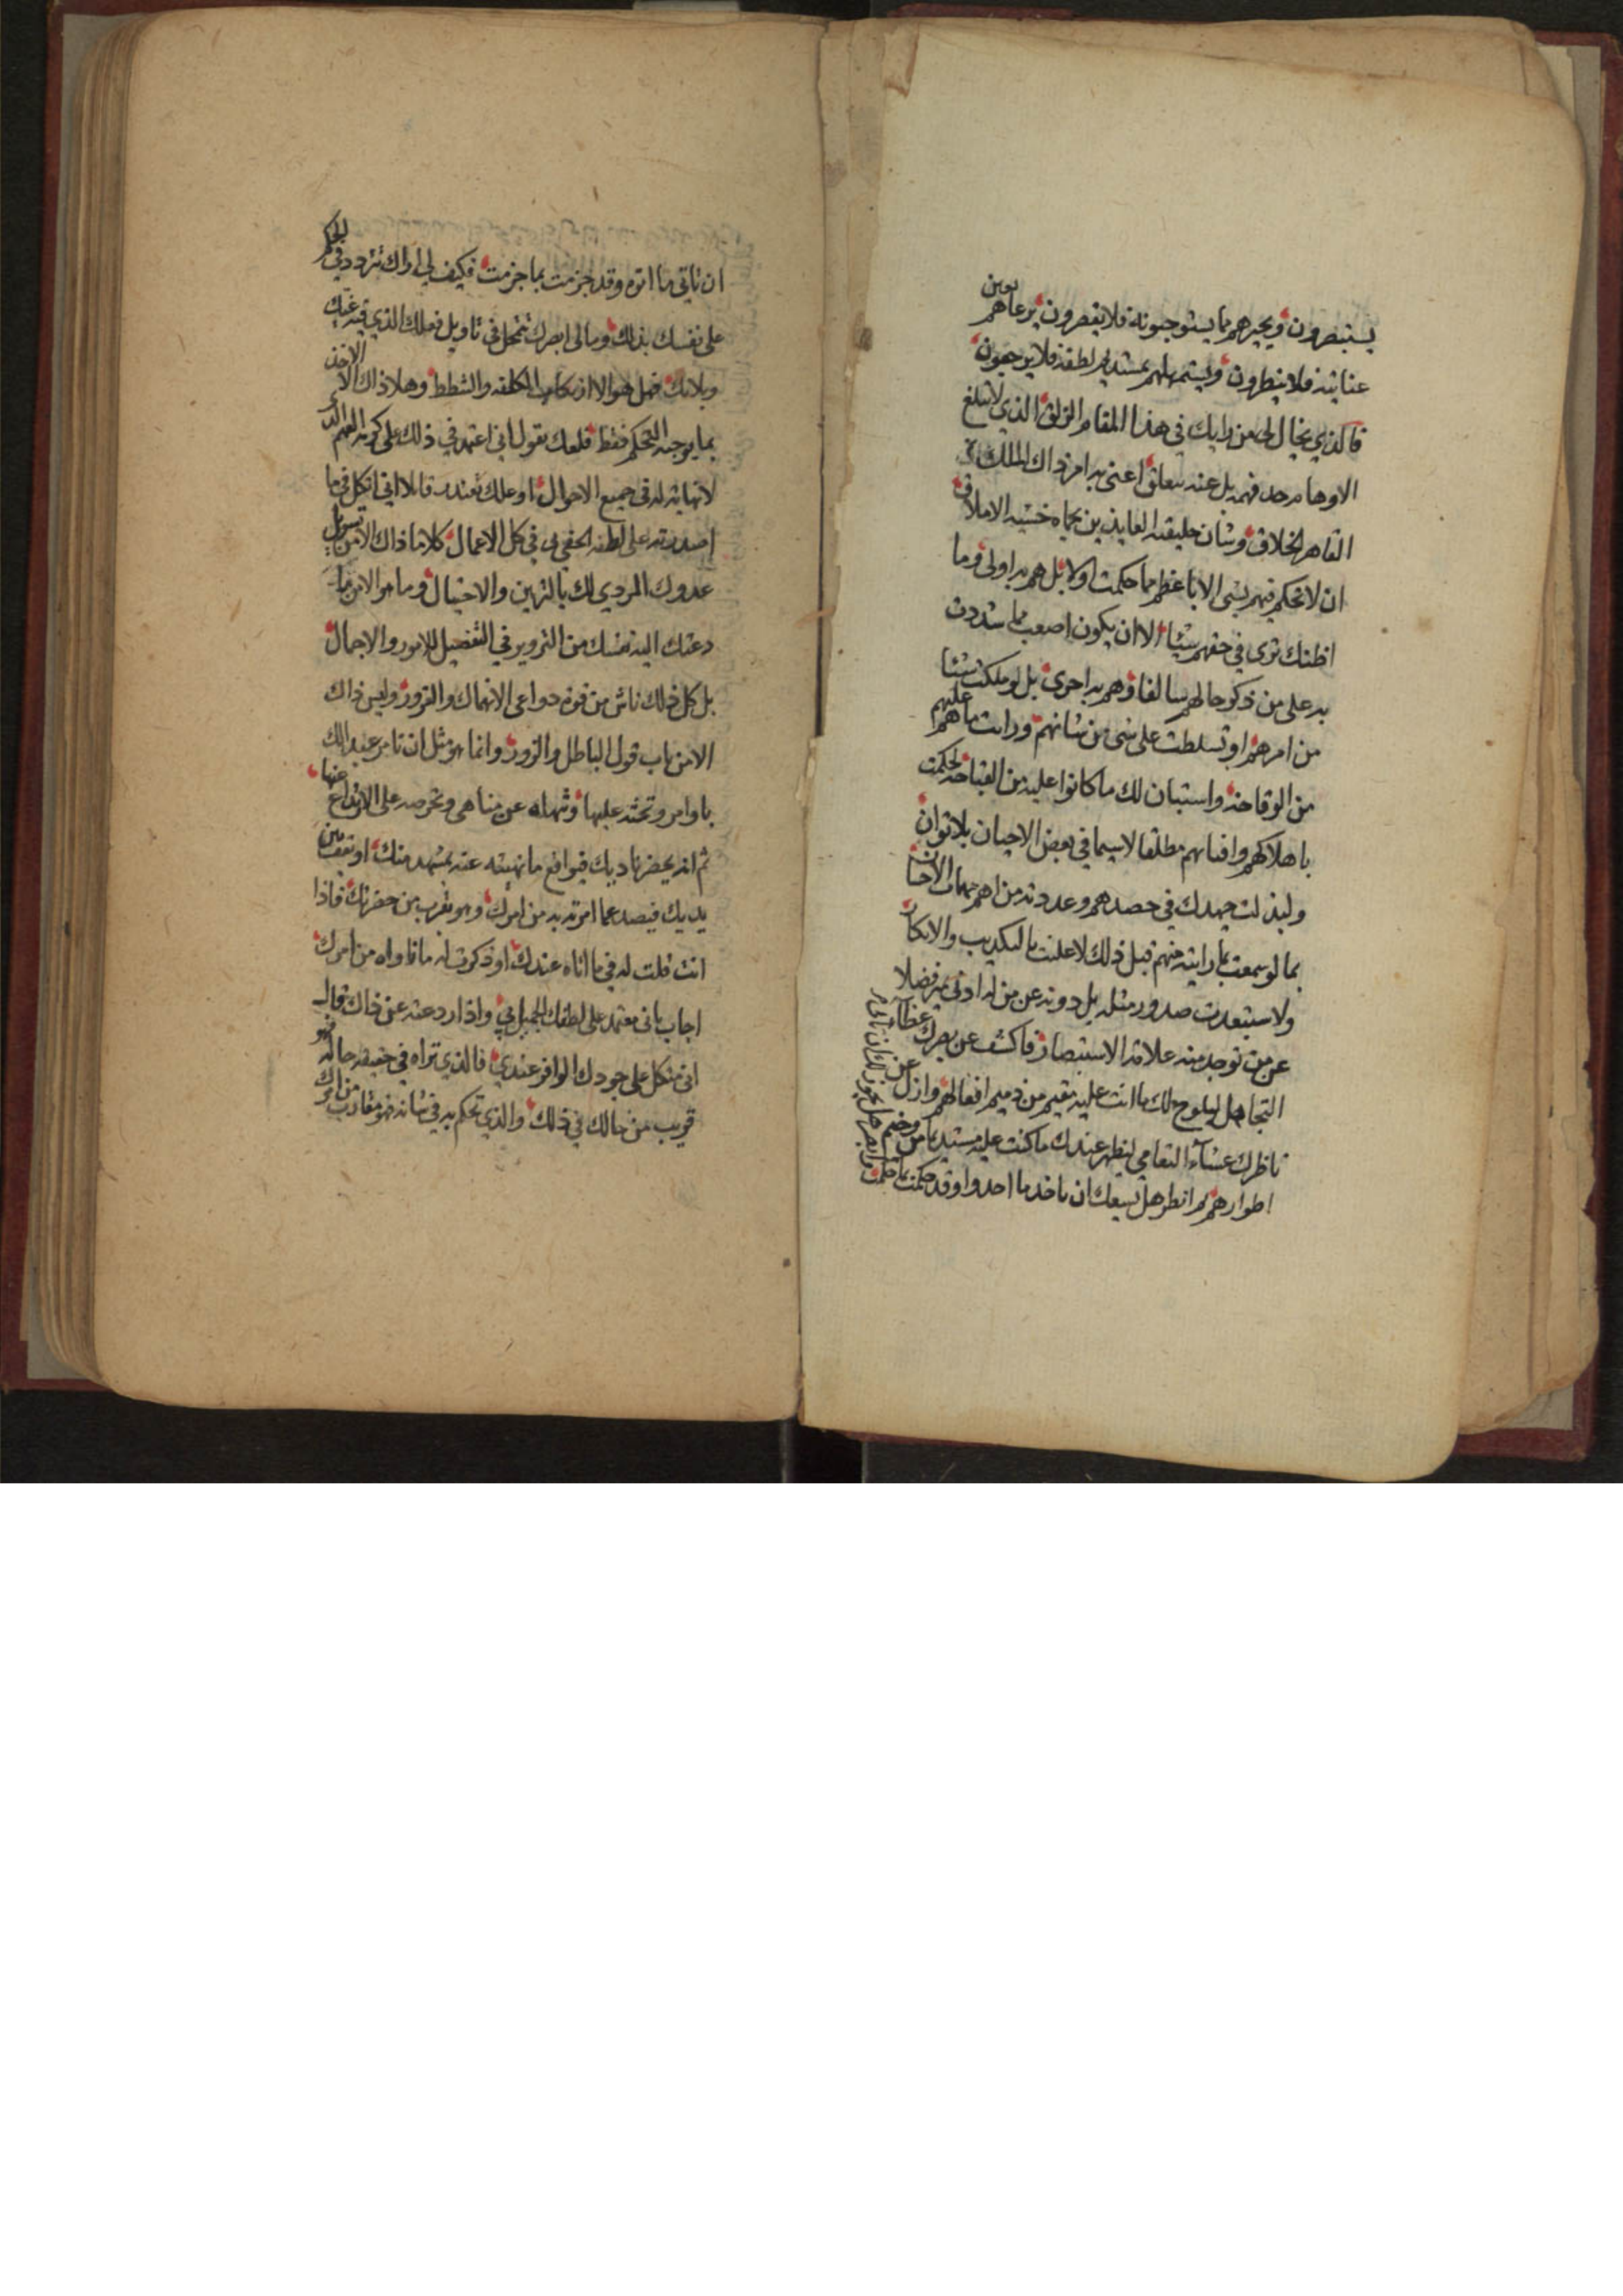 يستبصرون ويجيرهم مما يستوجبونه فلا يفصرون يرعاهم بعين
عنايته فلا ينظرون ويستمهلهم بمشديد لطفه فلا يرجعون
فالذي يخال لي من رايك في هذا المقام الزلق الذي لا تبلغ
الاوهام حد فهمه بل عنه تعاق اعني به امر ذاك الملك
القاهر الخلاق وشان خليقته العايذين بحماه خشية الاملاق
ان لا تحكم فيهم بشي الا باعظم مما حكمت اولا بل هم به اولى وما
اظنك ترى في حقهم شيئا الا ان يكون اصعب مما شددت
به على من ذكر حالهم سالفا وهم به احرى بل لو ملكت شيئا
من امرهم او تسلطت على شي من شانهم ورايت ما هم عليهم
من الوقاحة واستبان لك ما كانوا عليه من القباحة لحكمت
باهلاكهم وافنائهم مطلقا لا سيما في بعض الاحيان بلا توان
ولبذلت جهدك في حصدهم وعددته من اهم مهمات الاحسان
بما لو سمعت بما رايته منهم قبل ذلك لاعلنت بالتكذيب والانكار
ولاستبعدت صدور مثله بل دونه عن من له ادنى تميز فضلا
عن من توجد منه علاقة الاستبصار فاكشف عن بصرك غطاء
التجاهل ليلوح لك ما انت عليه مقيم من ذميم افعالهم وازل عن
ناظرك عشاء التعامي ليظهر عندك ما كنت عليه مستديما من وخيم
اطوارهم ثم انظر هل يسعك ان تاخذ ما احدوا وقد حكمت بما حكمت
ان تاتي ما اتوه وقد جزمت بما جزمت فكيف لي اراك تتردد في الحكم
على نفسك بذلك ومالي ابصرك تتمحل في تاويل فعلك الذي فيه غيك
وبلاؤك فهل هو الا ارتكاب الكلفه والشطط وهلا ذاك الا الاخذ
بما يوجبه التحكم فقط فلعلك تقول اني اعتمد في ذلك على كرمه العميم الذي
لا نهاية له في جميع الاحوال او علك تعتذر قائلا اني اتكل في ما
اصدرته على لطفه الخفي بي في كل الاعمال كلا ما ذاك الا من تسويل
عدوك المردي لك بالتزيين والاحتيال وما هو الا من ما
دعتك اليه نفسك من التزوير في التفضيل للامور والاجمال
بل كل ذلك ناش من قوة دواعي الانهماك والغرور وليس ذاك
الا من باب قول الباطل والزور وانما هو مثل ان تامر عبدا لك
باوامر وتحثه عليها وتنهاه عن مناهي وتحرصه على الارتداع عنها
ثم انه يحضر ناديك فيواقع ما نهيته عنه بمشهد منك او يقف بين
يديك فيصد عما امرته به من امرك وهو بقرب من حضرتك فاذا
انت قلت له في ما اتاه عندك او ذكرت له ما ناواه من امرك
اجاب باني معتمد على لطفك الجميل بي واذا ردعته عن ذاك قال
اني متكل على جودك الوافر عندي فالذي تراه في حقيقة حاله فهو
قريب من حالك في ذلك والذي تحكم به في شانه فهو مقارب من امرك